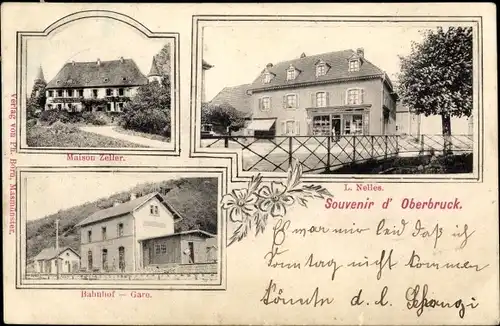 Maison Zeller.
L. Nelles.
Souvenir d' Oberbruck.
Es war mir leid daß ich
Sonntag nicht kommen
könnte d. l.
Bahnhof — Gare.
Verlag von Th. Born, Masmünster.